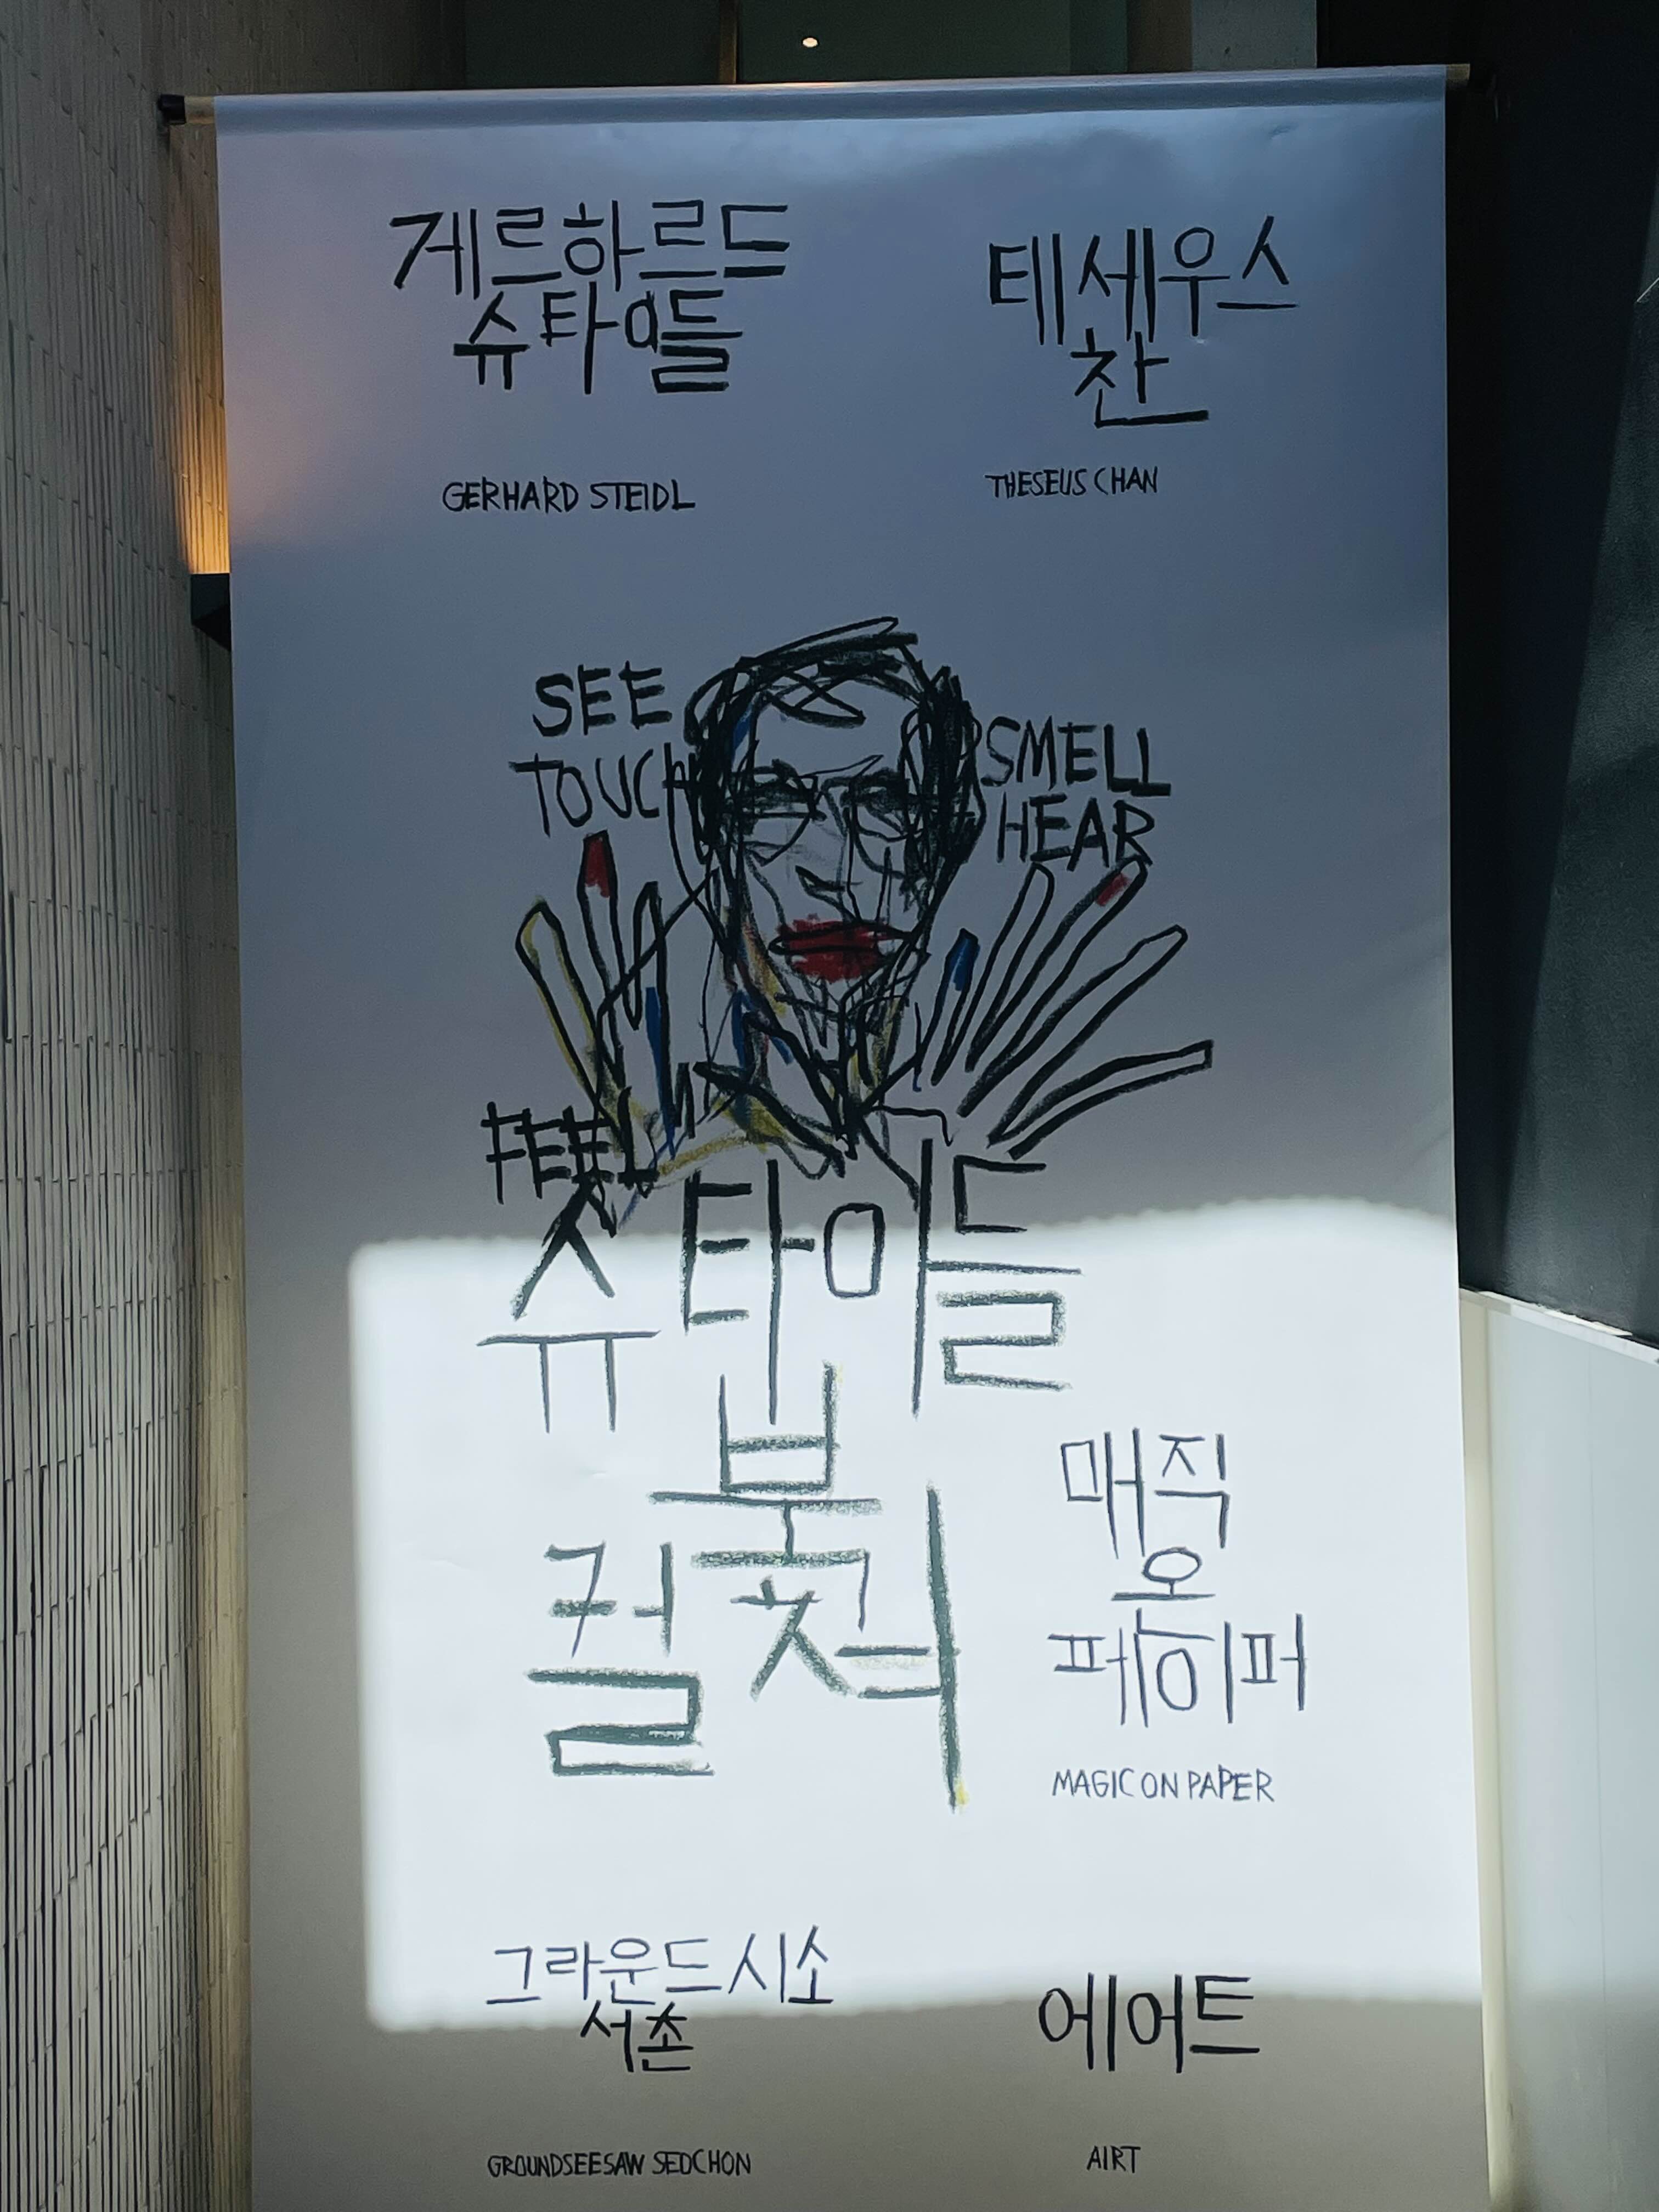 게르하르드
슈타이들
GERHARD STEIDL
테세우스
찬
THESEUS CHAN
SEE
TOUCH
SMELL
HEAR
FEEL
슈타이들
북
컬쳐
매직
온
페이퍼
MAGIC ON PAPER
그라운드시소
서촌
GROUNDSEESAW SEOCHON
에어트
AIRT